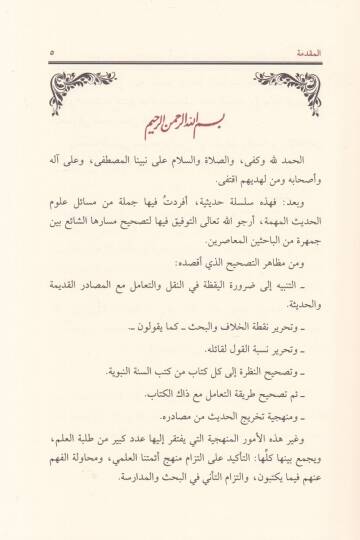 المقدمة ٥
بسم الله الرحمن الرحيم
الحمد لله وكفى، والصلاة والسلام على نبينا المصطفى، وعلى آله
وأصحابه ومن لهديهم اقتفى.
وبعد: فهذه سلسلة حديثية، أفردتُ فيها جملة من مسائل علوم
الحديث المهمة، أرجو الله تعالى التوفيق فيها لتصحيح مسارها الشائع بين
جمهرة من الباحثين المعاصرين.
ومن مظاهر التصحيح الذي أقصده:
ـ التنبيه إلى ضرورة اليقظة في النقل والتعامل مع المصادر القديمة
والحديثة.
ـ وتحرير نقطة الخلاف والبحث ـ كما يقولون ـ.
ـ وتحرير نسبة القول لقائله.
ـ وتصحيح النظرة إلى كل كتاب من كتب السنة النبوية.
ـ ثم تصحيح طريقة التعامل مع ذاك الكتاب.
ـ ومنهجية تخريج الحديث من مصادره.
وغير هذه الأمور المنهجية التي يفتقر إليها عدد كبير من طلبة العلم،
ويجمع بينها كلِّها: التأكيد على التزام منهج أئمتنا العلمي، ومحاولة الفهم
عنهم فيما يكتبون، والتزام التأني في البحث والمدارسة.